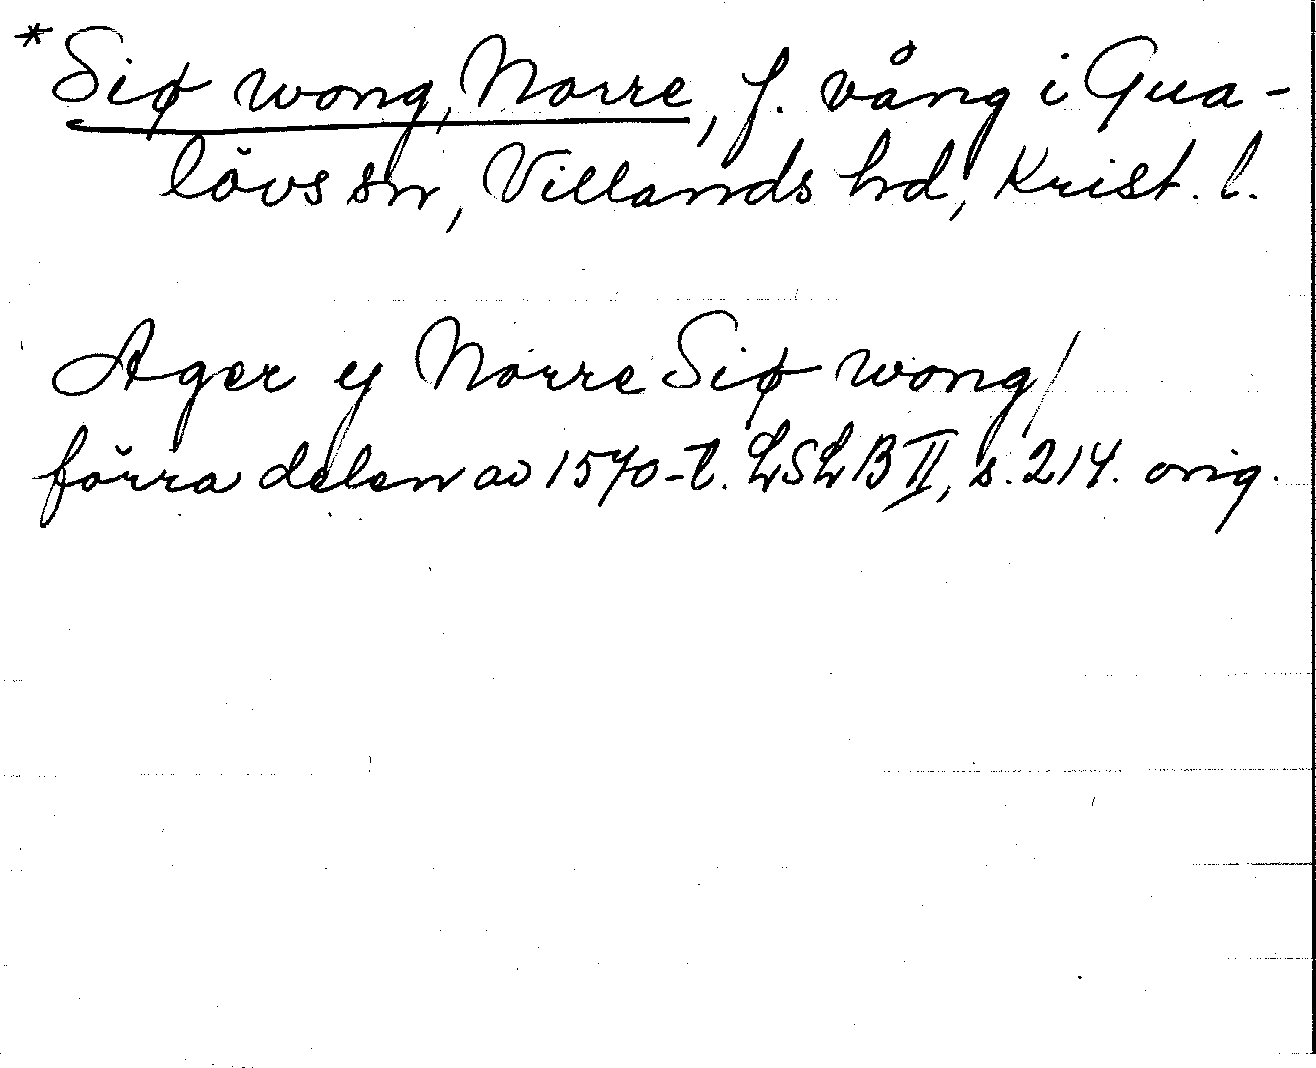 *Siø wong, Norre, f. vång i Gua-
lövs sn, Villands hd, Krist. l.
Ager ej Norre Siø wong/
förra delen av 1570-t. LSLB II, s. 214. orig.